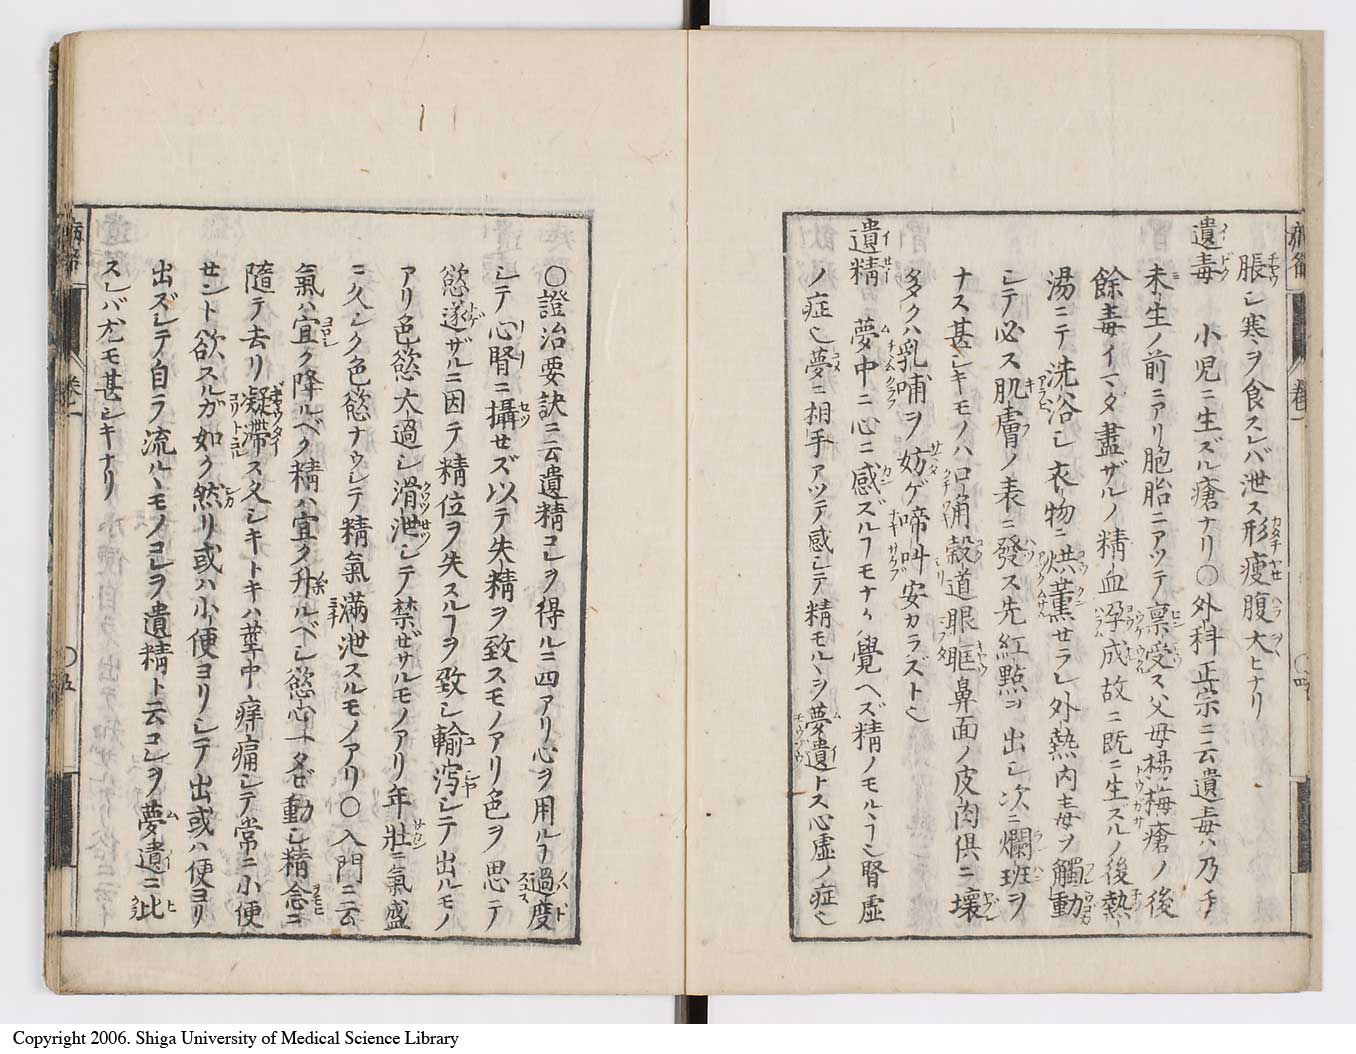 脹シ寒ヲ食スレバ泄ス形瘦腹大ヒナリ
遺毒 小児ニ生ズル瘡ナリ〇外科正宗ニ云遺毒ハ乃チ
未生ノ前ニアリ胞胎ニアツテ禀受ス父母楊梅瘡ノ後
餘毒イマダ盡ザルノ精血孕成故ニ既ニ生ズルノ後熱
湯ニテ洗浴シ衣物ニ烘薫セラレ外熱内毒ヲ觸動
シテ必ス肌膚ノ表ニ發ス先紅點ヲ出シ次ニ爛班ヲ
ナス甚シキモノハ口角穀道眼眶鼻面ノ皮肉倶ニ壊
多クハ乳哺ヲ妨ゲ啼叫安カラズト也
遺精 夢中ニ心ニ感ズルヿモナク覺ヘズ精ノモルヽ也腎虚
ノ症也夢ニ相手アツテ感シテ精モルヽヲ夢遺トス心虚ノ症也
〇證治要訣ニ云遺精コレヲ得ルニ四アリ心ヲ用ルヿ過度
シテ心腎ニ攝セズ以テ失精ヲ致スモノアリ色ヲ思テ
慾遂ザルニ因テ精位ヲ失スルヿヲ致シ輸瀉シテ出ルモノ
アリ色慾大過シ滑泄シテ禁ゼザルモノアリ年壯ニ氣盛
ニ久シク色慾ナウシテ精氣滿泄スルモノアリ〇入門ニ云
氣ハ宜ク降ルベク精ハ宜ク升ルベシ慾念一タビ動シ精念ニ
隨テ去リ凝滞ス久シキトキハ莖中痒痛シテ常ニ小便
セント欲スルガ如ク然リ或ハ小便ヨリシテ出或ハ便ヨリ
出ズシテ自ラ流ルヽモノコレヲ遺精ト云コレヲ夢遺ニ比
スレバ尤モ甚シキナリ
卷一
〇四
卷一
〇五
Copyright 2006. Shiga University of Medical Science Library